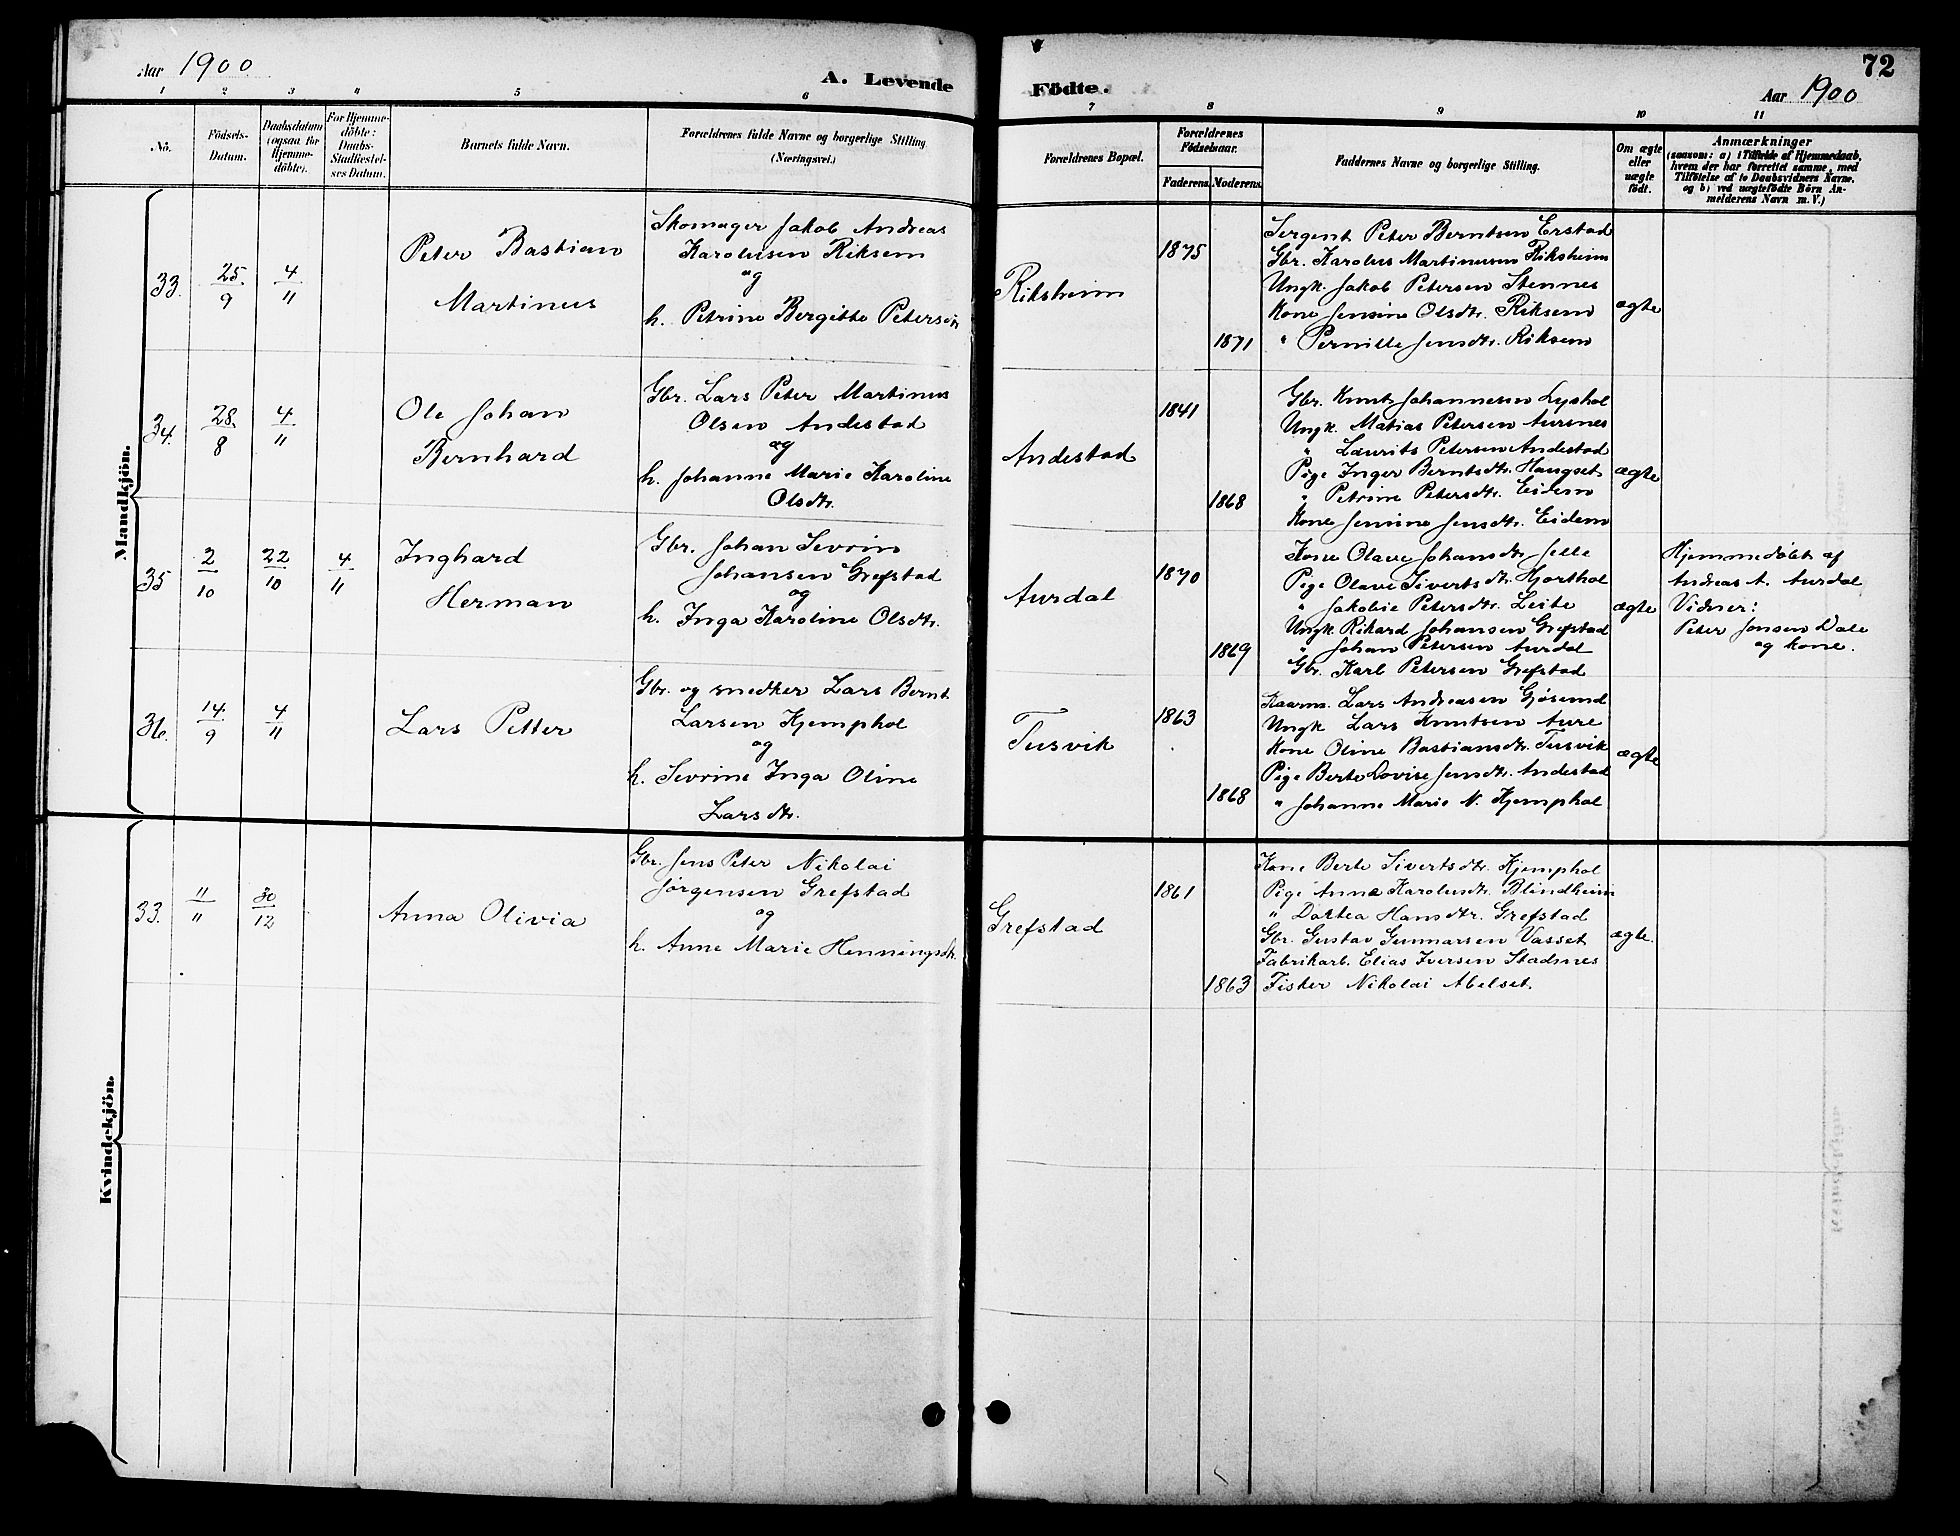 Aar 1900
A. Levende
Födte.
72
Aar 1900
1 2 3 4 5 6 7 8 9 10 11
No.
Födsels-
Datum.
Daabsdatum
(ogsaa for
Hjemme-
döbte).
For Hjemme-
döbte:
Daabs-
Stadfæstel-
ses Datum.
Barnets fulde Navn.
Forældrenes fulde Navne og borgerlige Stilling
(Næringsvei.)
Forældrenes Bopæl.
Forældrenes
Födselsaar.
Faderens. Moderens.
Faddernes Navne og borgerlige Stilling.
Om ægte
eller
uægte
födt.
Anmærkninger
(saasom: a) i Tilfælde af Hjemmedaab,
hvem der har forrettet samme, med
Tilföielse af to Daabsvidners Navne,
og b) ved uægtefödte Börn An-
melderens Navn m. V.)
Mandkjön.
33. 25/9 4/11
Peter Bastian
Martinus
Skomager Jakob Andreas
Karolusen Riksem
og
h. Petrine Bergitte Petersen
Riksheim
1875
1871
Sergent Peter Berntsen Erstad
Gbr. Karolus Martinusen Riksheim
Ungk. Jakob Petersen Stennes
Kone Jensine Olsdtr. Riksem
" Pernille Jensdtr. Riksem
ægte
34. 28/8 4/11
Ole Johan
Bernhard
Gbr. Lars Peter Martinus
Olsen Andestad
og
h. Johanne Marie Karoline
Olsdtr.
Andestad
1841
1868
Gbr. Knut Johannesen Lyshol
Ungk. Matias Petersen Aursnes
" Laurits Petersen Andestad
Pige Inger Berntsdtr. Haugset
" Petrine Petersdtr. Eidem
Kone Jensine Jensdtr. Eidem
ægte
35 2/10 22/10 4/11
Inghard
Herman
Gbr. Johan Sevrin
Johansen Grefstad
og
h. Inga Karoline Olsdtr.
Aurdal
1870
1869
Kone Olave Johansdtr. Jelle
Pige Olave Sivertsdtr. Hjorthol
" Jakobie Petersdtr. Leite
Ungk. Rikard Johansen Grefstad
" Johan Petersen Aurdal
Gbr. Karl Petersen Grefstad
ægte
Hjemmedøbt af
Andreas A. Aurdal
Vidner:
Peter Jensen Dale
og kone.
36. 14/9 4/11
Lars Petter
Gbr. og snedker Lars Bernt
Larsen Kjemphol
og
h. Sevrine Inga Oline
Larsdtr.
Tusvik
1863
1868
Kaarm. Lars Andreasen Gjøsund
Ungk Lars Knutsen Aure
Kone Oline Bastiansdtr. Tusvik
Pige Berte Lovise Jensdtr. Andestad
" Johanne Marie N. Kjemphol
ægte
Kvindekjön.
33. 11/11 30/12
Anna Olivia
Gbr. Jens Peter Nikolai
Jørgensen Grefstad
og
h. Anne Marie Henningsdtr.
Grefstad
1861
1863
Kone Berte Sivertsdtr. Kjemphol
Pige Anna Karolusdtr. Blindheim
" Dortea Hansdtr. Grefstad
Gbr. Gustav Gunnarsen Vasset
Fabrikarb. Elias Iversen Stadsnes
Fisker Nikolai Abelset.
ægte.